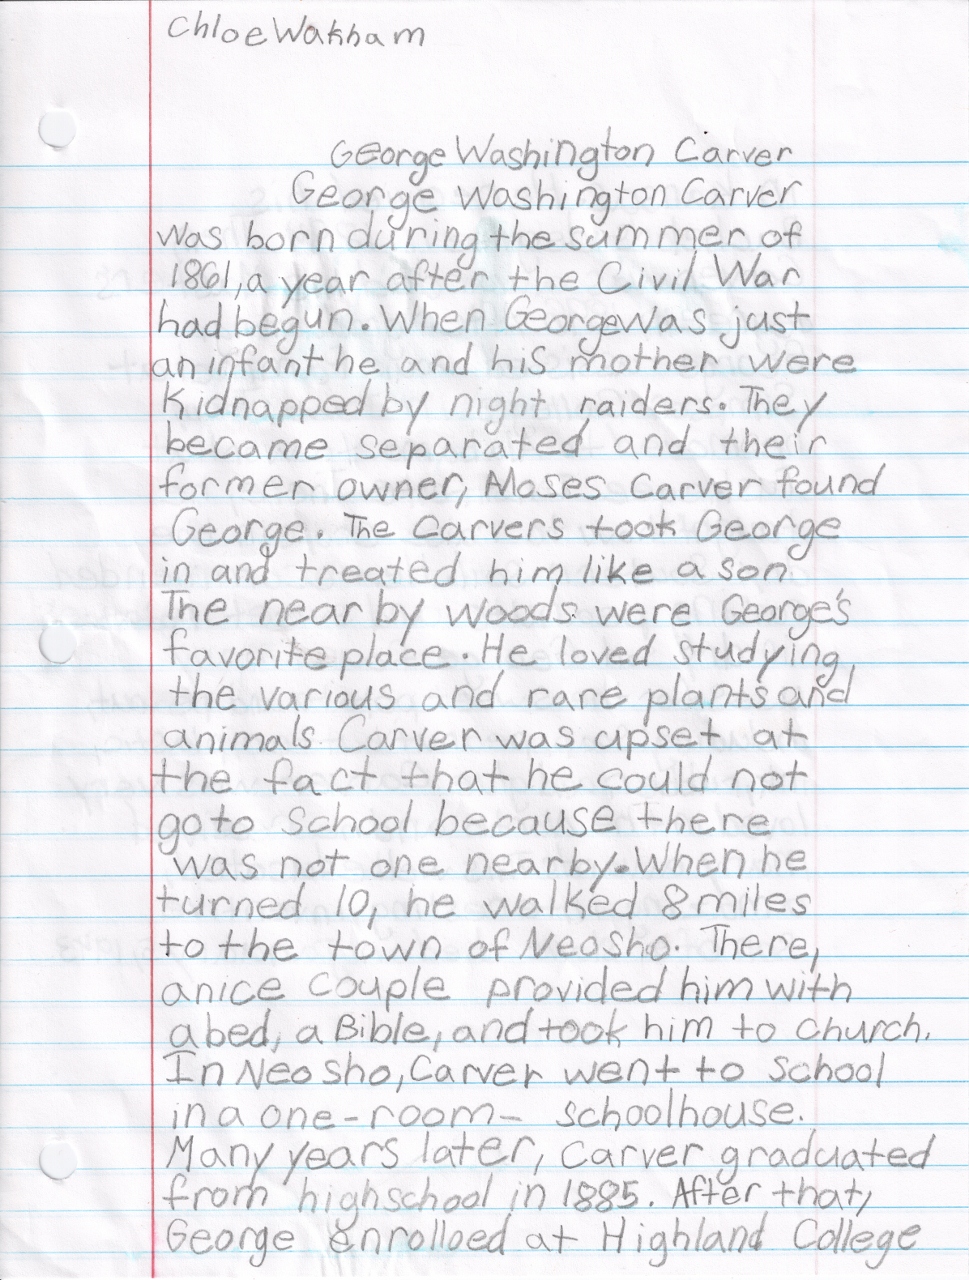 Chloe Wakham
George Washington Carver
George Washington Carver
was born during the summer of
1861, a year after the Civil War
had begun. When George was just
an infant he and his mother were
kidnapped by night raiders. They
became separated and their
former owner, Moses Carver found
George. The Carvers took George
in and treated him like a son.
The near by woods were George's
favorite place. He loved studying
the various and rare plants and
animals. Carver was upset at
the fact that he could not
go to school because there
was not one nearby. When he
turned 10, he walked 8 miles
to the town of Neosho. There,
a nice couple provided him with
a bed, a Bible, and took him to church.
In Neosho, Carver went to school
in a one-room- schoolhouse.
Many years later, Carver graduated
from highschool in 1885. After that,
George enrolloed at Highland College